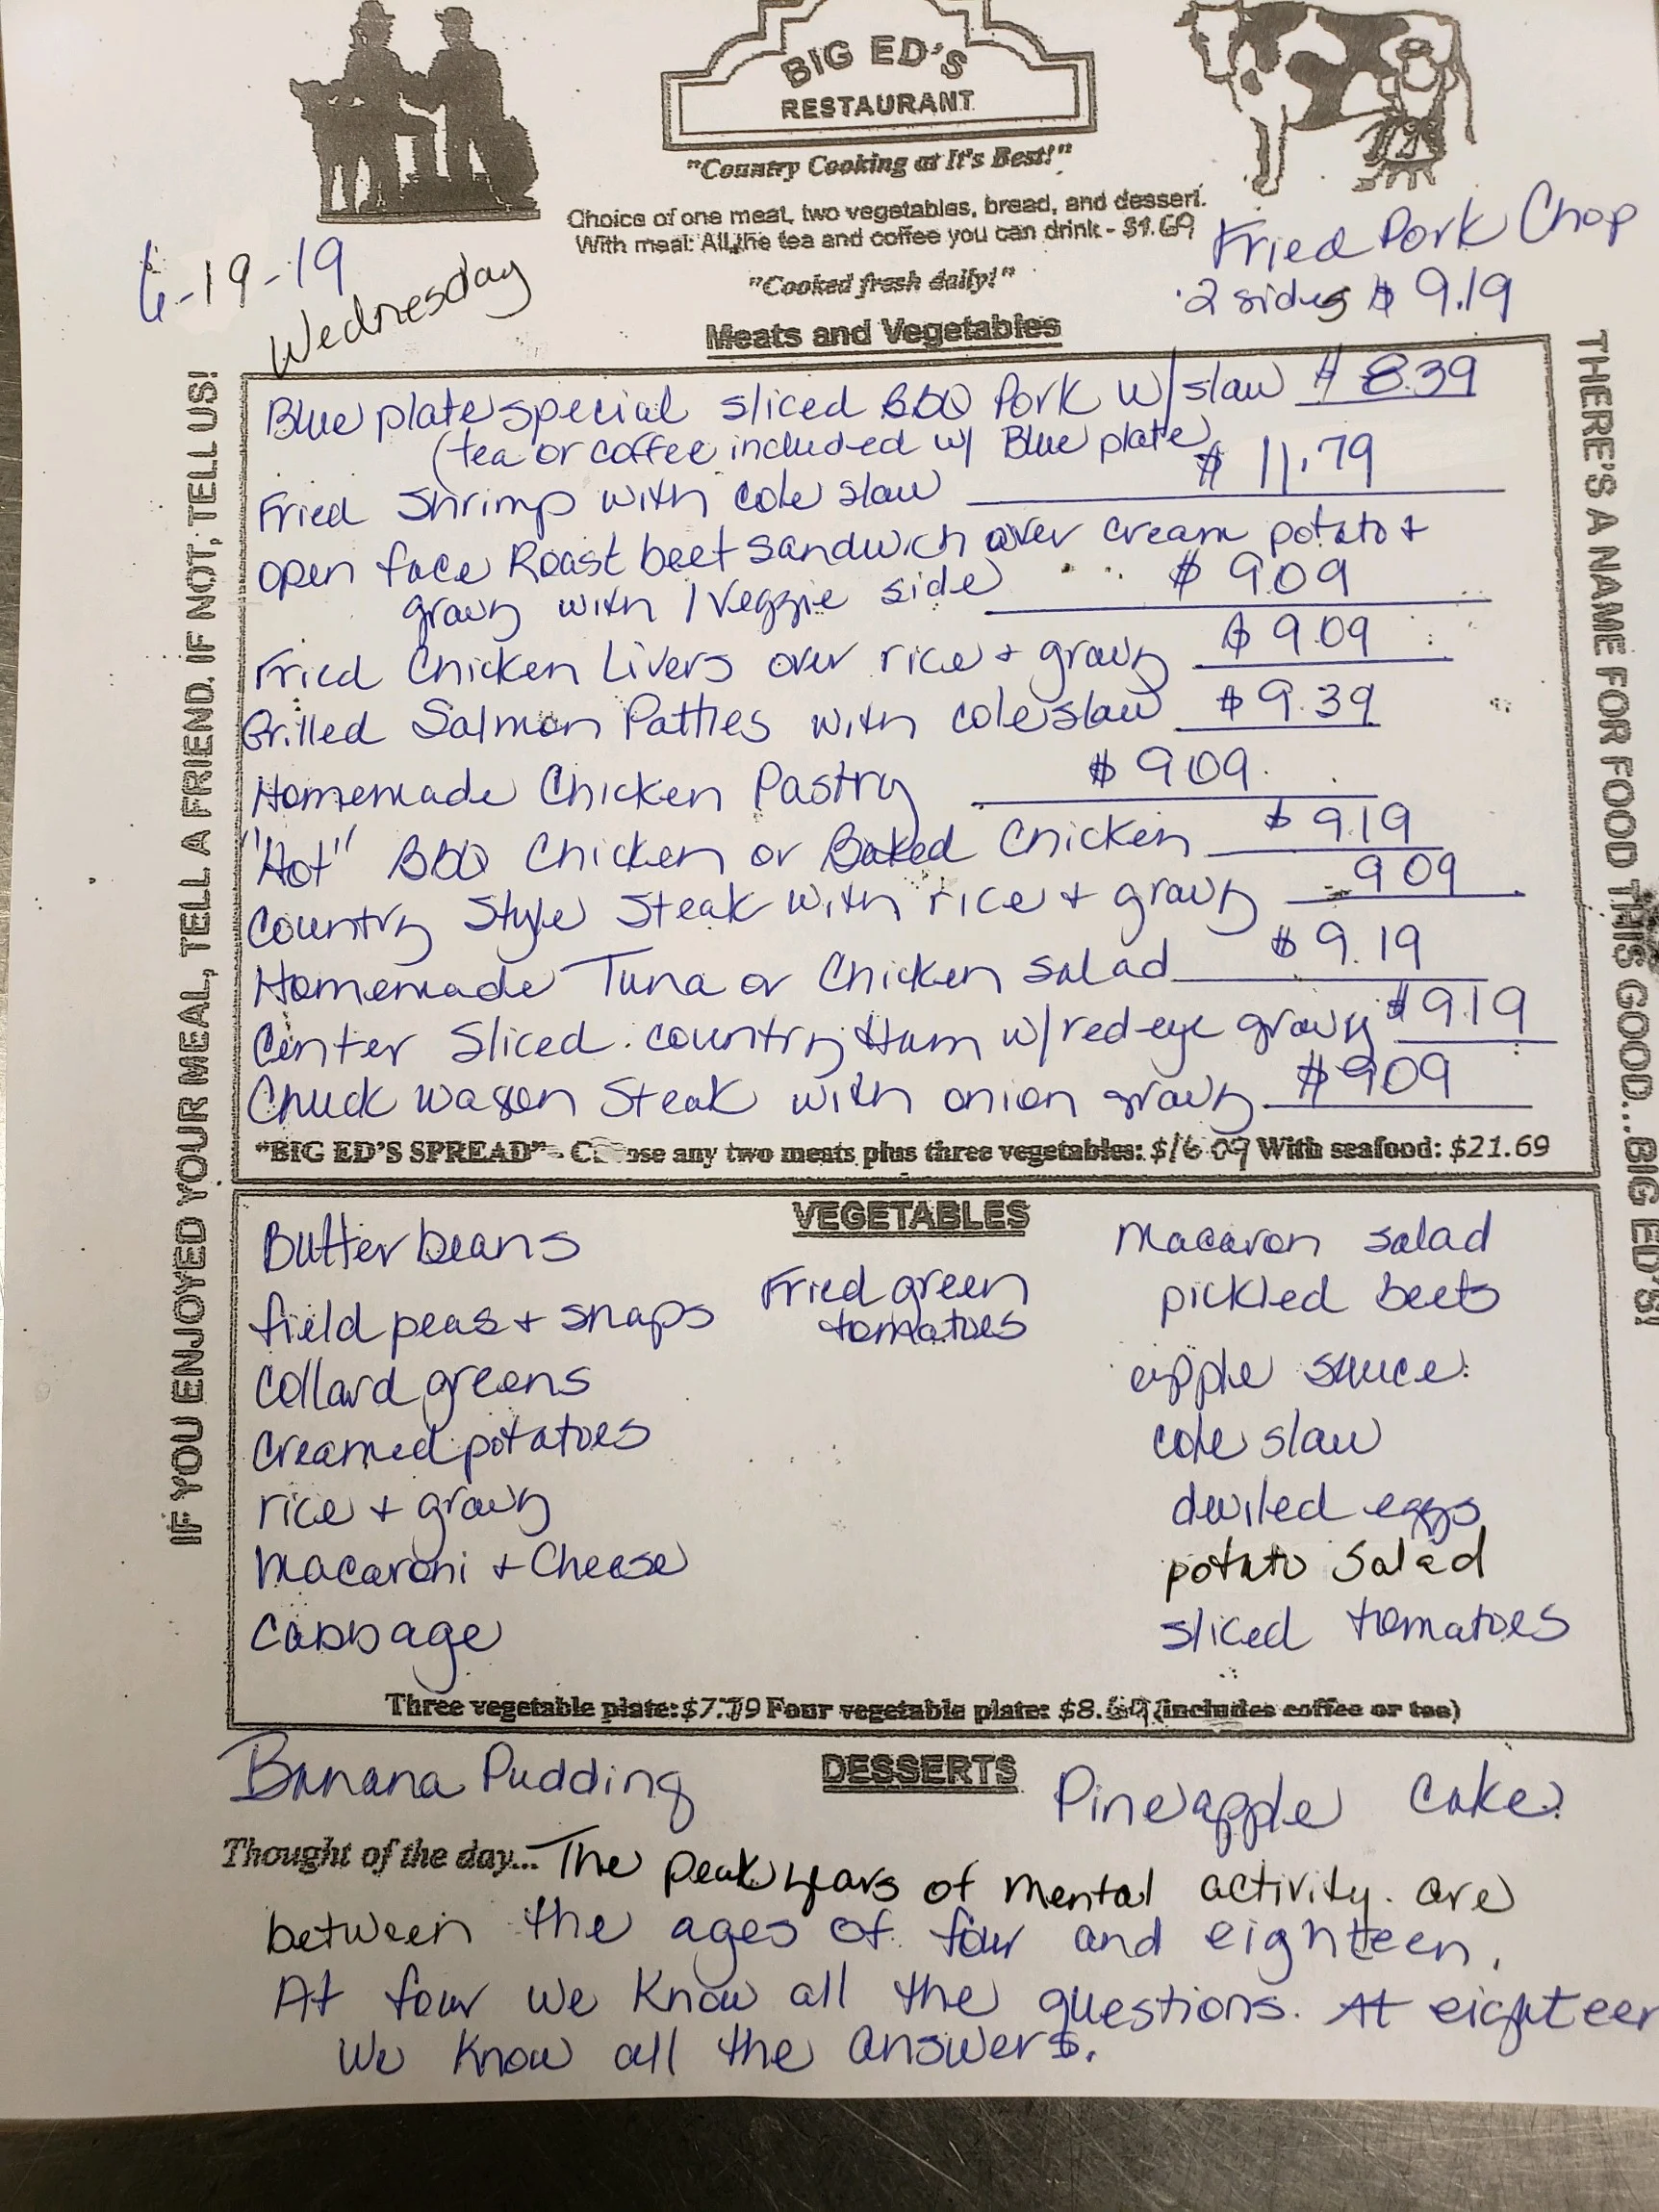 BIG ED'S
RESTAURANT
"Country Cooking at It's Best!"
Choice of one meat, two vegetables, bread, and dessert.
With meal: All the tea and coffee you can drink - $1.69
"Cooked fresh daily!"
6-19-19
Wednesday
Fried Pork Chop
2 sides $ 9.19
Meats and Vegetables
Blue plate special sliced BBQ Pork w/slaw $ 8.39
(tea or coffee included w/ Blue plate)
Fried Shrimp with cole slaw $ 11.79
open face Roast beef sandwich over cream potato +
gravy with 1 Veggie side $ 9.09
Fried Chicken Livers over rice + gravy $ 9.09
Grilled Salmon Patties with cole slaw $ 9.39
Homemade Chicken Pastry $ 909
"Hot" BBQ Chicken or Baked Chicken $ 919
Country Style Steak with rice + gravy 909
Homemade Tuna or Chicken salad $ 9.19
Center Sliced country Ham w/red-eye gravy $ 919
Chuck wagon Steak with onion gravy $ 909
"BIG ED'S SPREAD" - Choose any two meats plus three vegetables: $16.09 With seafood: $21.69
VEGETABLES
Butter beans
field peas + snaps
Collard greens
Creamed potatoes
rice + gravy
Macaroni + Cheese
Cabbage
Fried green
tomatoes
Macaron salad
pickled beets
apple sauce
cole slaw
deviled eggs
potato salad
sliced tomatoes
Three vegetable plate: $7.79 Four vegetable plate: $8.69 (includes coffee or tea)
DESSERTS
Banana Pudding
Pineapple Cake
Thought of the day... The peak years of mental activity are
between the ages of four and eighteen.
At four we know all the questions. At eighteen
we know all the answers.
IF YOU ENJOYED YOUR MEAL, TELL A FRIEND. IF NOT, TELL US!
THERE'S A NAME FOR FOOD THIS GOOD...BIG ED'S!